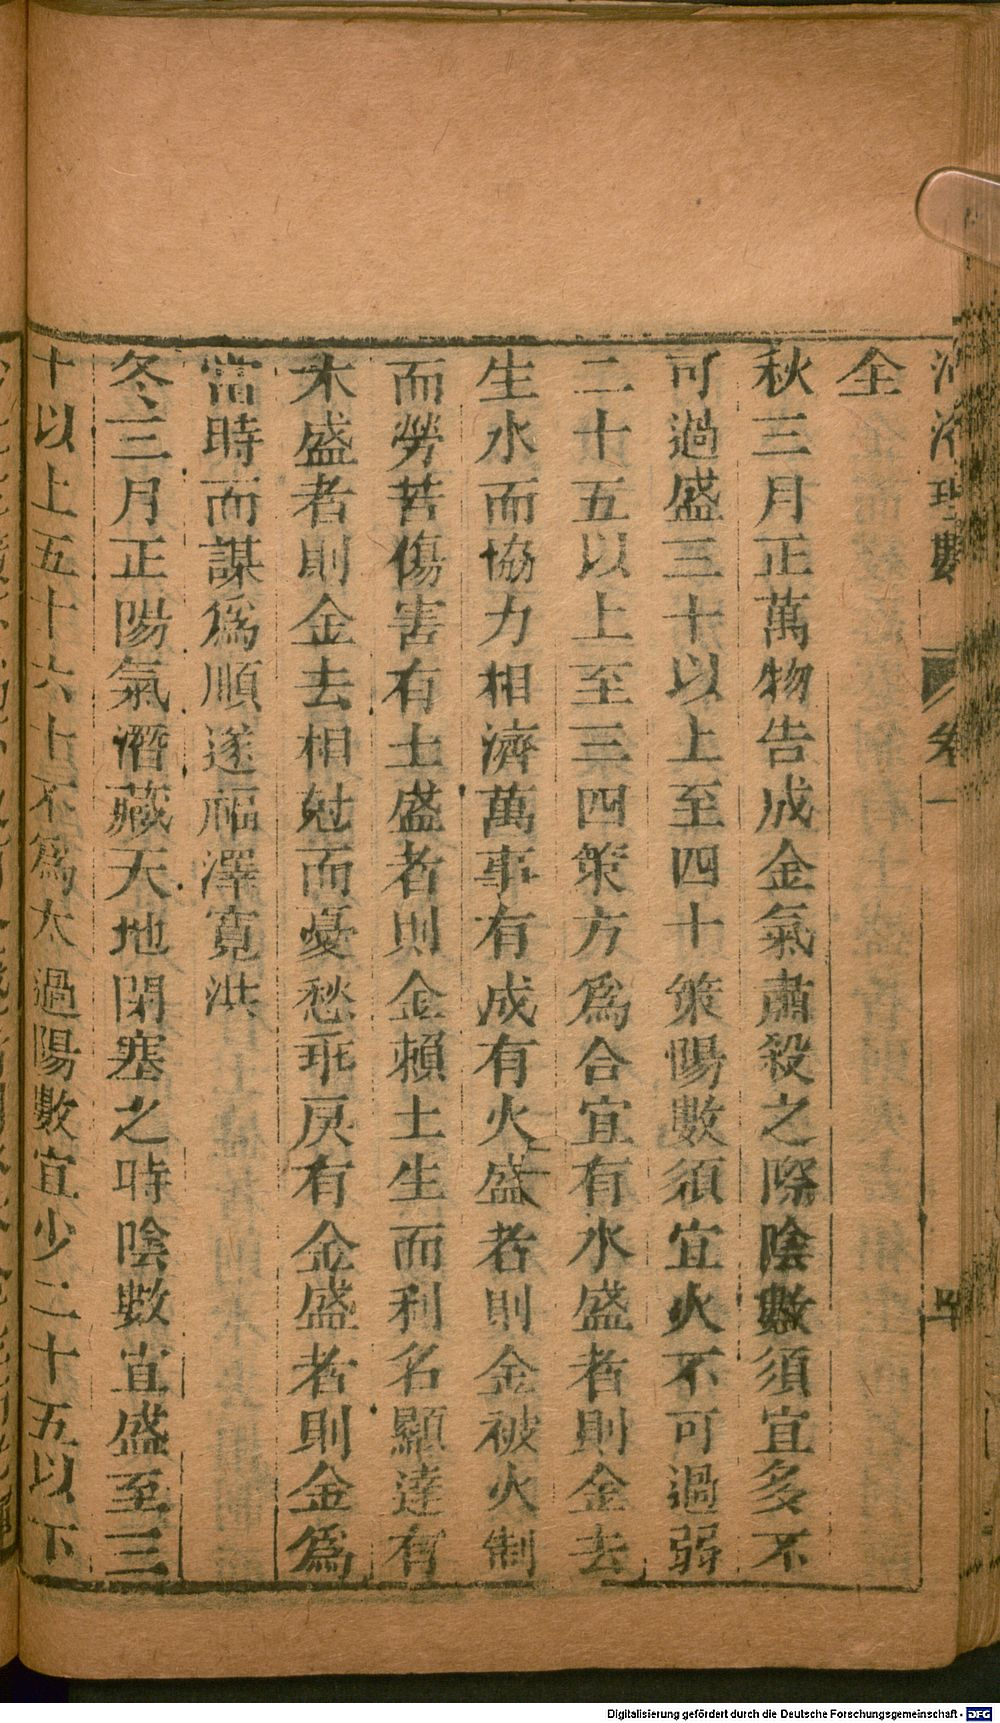 河洛理數 卷一
全
秋三月正萬物告成金氣肅殺之際陰數須宜多不
可過盛三十以上至四十策陽數須宜火不可過弱
二十五以上至三四策方爲合宜有水盛者則金去
生水而協力相濟萬事有成有火盛者則金被火制
而勞苦傷害有土盛者則金賴土生而利名顯達有
木盛者則金去相尅而憂愁乖戾有金盛者則金爲
當時而謀爲順遂福澤寛洪
冬三月正陽氣潛藏天地閉塞之時陰數宜盛至三
十以上五十六七不爲太過陽數宜少二十五以下
Digitalisierung gefördert durch die Deutsche Forschungsgemeinschaft - DFG